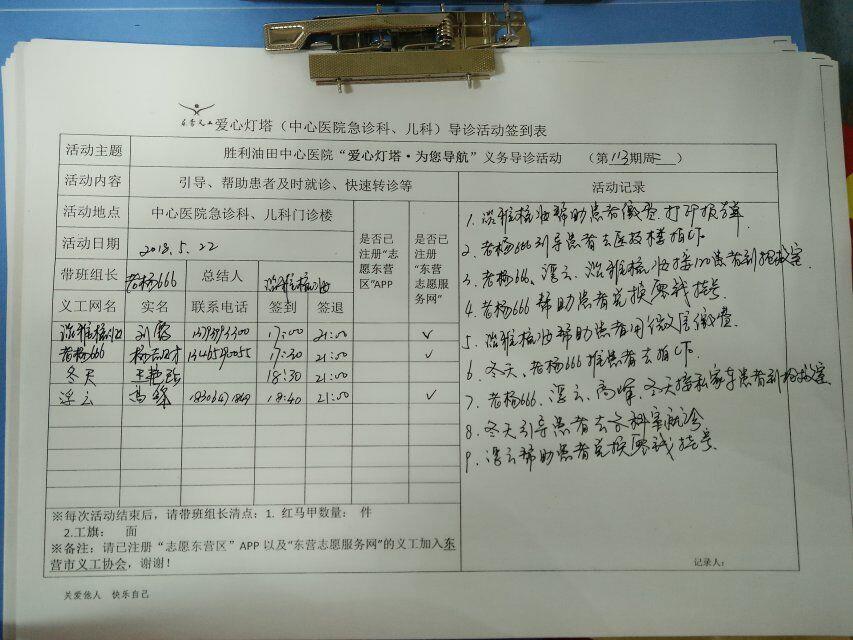 东营义工 爱心灯塔（中心医院急诊科、儿科）导诊活动签到表
活动主题 胜利油田中心医院“爱心灯塔·为您导航”义务导诊活动 （第113期周二）
活动内容 引导、帮助患者及时就诊、快速转诊等
活动地点 中心医院急诊科、儿科门诊楼
活动日期 2018.5.22
带班组长 老杨666 总结人
是否已注册“志愿东营区”APP
是否已注册“东营志愿服务网”
义工网名 实名 联系电话 签到 签退
17:00 21:00 ✓
老杨666 17:30 21:00 ✓
冬天 18:30 21:00
浮云 高峰 18:40 21:00 ✓
※每次活动结束后，请带班组长清点：1. 红马甲数量： 件
2.工旗： 面
※备注：请已注册“志愿东营区”APP 以及“东营志愿服务网”的义工加入东
营市义工协会，谢谢！
活动记录
1. 帮助患者微查.打印报告单
2. 老杨666引导患者去医技楼拍CT
3. 老杨666、浮云、接120患者到抢救室
4. 老杨666帮助患者兑换零钱挂号
5. 帮助患者用微信缴费
6. 冬天、老杨666推患者去拍CT
7. 老杨666、浮云、高峰、冬天接私家车患者到抢救室
8. 冬天引导患者去各科室就诊
9. 浮云帮助患者兑换零钱挂号
记录人：
关爱他人 快乐自己